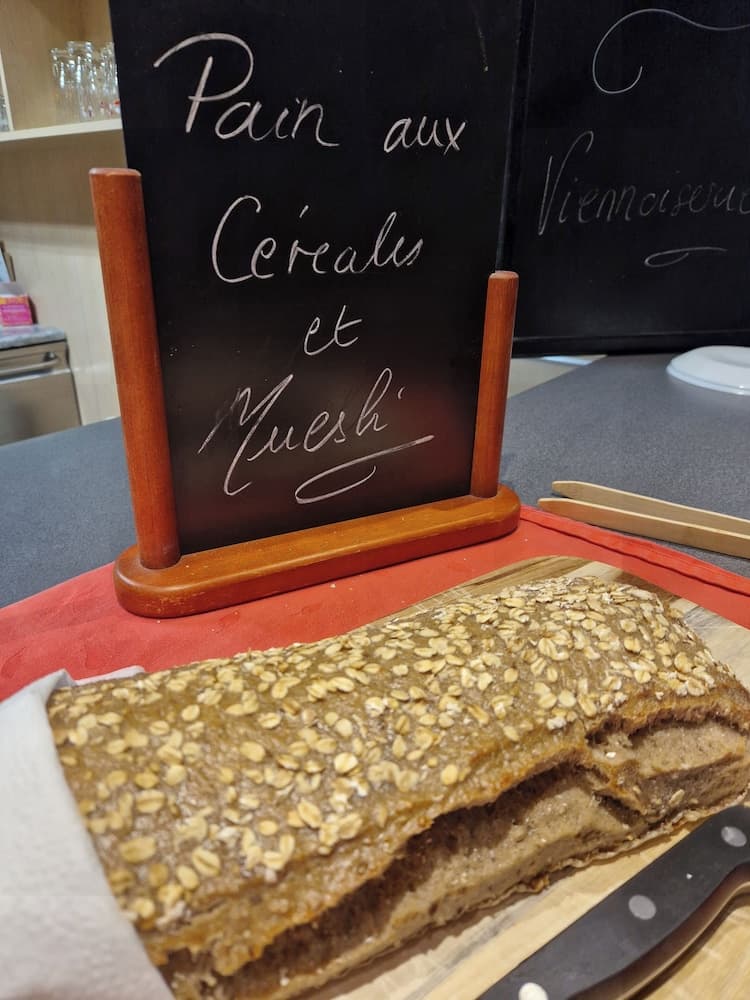 Pain aux
Céréales
et
Muesli
Viennoiserie